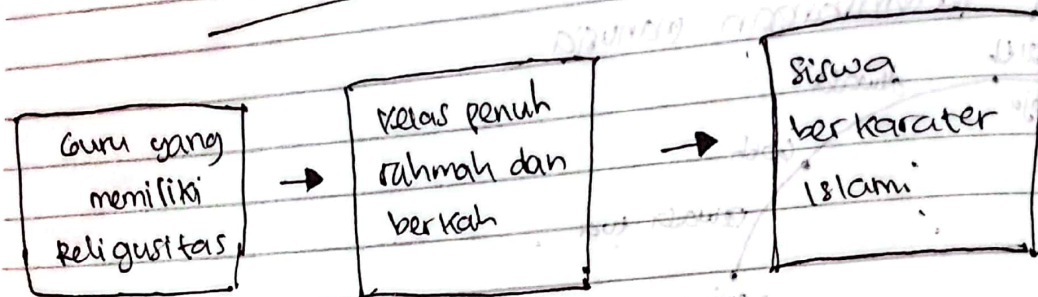 Guru yang
memiliki
Religusitas
Kelas penuh
rahmah dan
berkah
siswa
berkarater
Islami